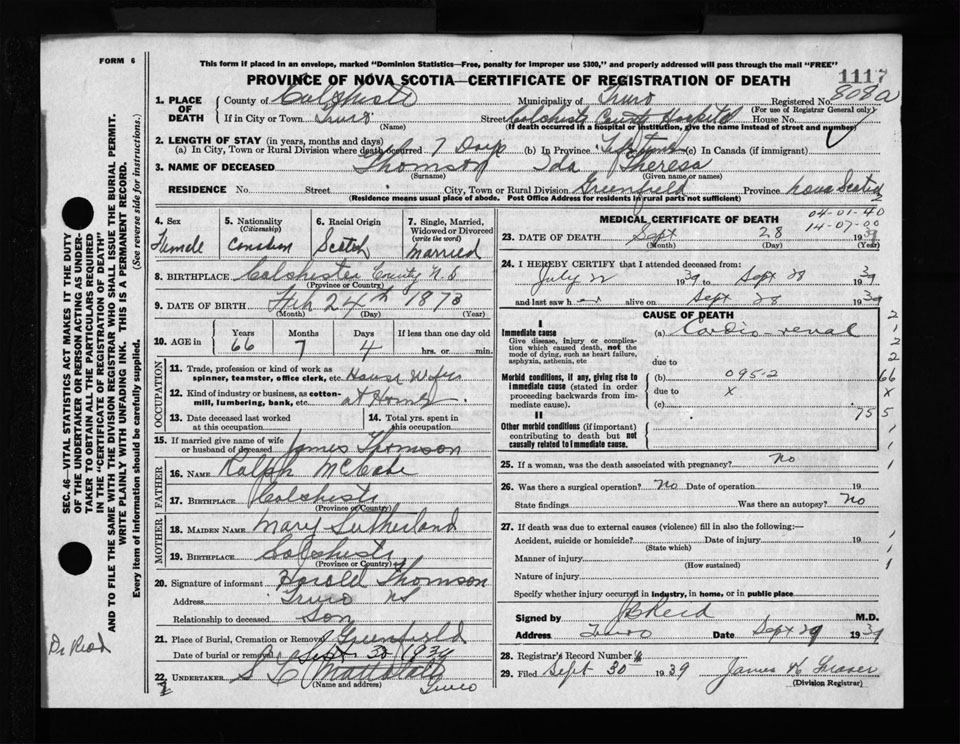 FORM 6
This form if placed in an envelope, marked "Dominion Statistics—Free, penalty for improper use $300," and properly addressed will pass through the mail "FREE"
PROVINCE OF NOVA SCOTIA—CERTIFICATE OF REGISTRATION OF DEATH
1117
808a
1. PLACE OF DEATH
County of Colchester Municipality of Truro Registered No.
(For use of Registrar General only)
If in City or Town Truro Street Colchester County Hospital House No.
(Name) (If death occurred in a hospital or institution, give the name instead of street and number)
2. LENGTH OF STAY (in years, months and days)
(a) In City, Town or Rural Division where death occurred 7 Days (b) In Province Lifetime (c) In Canada (if immigrant)
3. NAME OF DECEASED Thomson Ida Theresa
(Surname) (Given name or names)
RESIDENCE No. Street City, Town or Rural Division Greenfield Province Nova Scotia
(Residence means usual place of abode. Post Office Address for residents in rural parts not sufficient)
2
4. Sex
Female
5. Nationality
(Citizenship)
Canadian
6. Racial Origin
Scotch
7. Single, Married, Widowed or Divorced
(write the word)
Married
8. BIRTHPLACE Colchester County N S
(Province or Country)
9. DATE OF BIRTH Feb 24th 1873
(Month) (Day) (Year)
10. AGE in
Years Months Days If less than one day old
66 7 4 hrs. or min.
OCCUPATION
11. Trade, profession or kind of work as spinner, teamster, office clerk, etc. House Wife
12. Kind of industry or business, as cotton-mill, lumbering, bank, etc. at Home
13. Date deceased last worked at this occupation
14. Total yrs. spent in this occupation
15. If married give name of wife or husband of deceased James Thomson
FATHER
16. NAME Ralph McCabe
17. BIRTHPLACE Colchester
(Province or Country)
MOTHER
18. MAIDEN NAME Mary Sutherland
19. BIRTHPLACE Colchester
(Province or Country)
20. Signature of informant Harold Thomson
Address Truro NS
Relationship to deceased Son
21. Place of Burial, Cremation or Removal Greenfield
Date of burial or removal Sept 30 1939
22. UNDERTAKER
(Name and address)
Truro
MEDICAL CERTIFICATE OF DEATH
04-01-40
14-07-00
23. DATE OF DEATH Sept 28 1939
(Month) (Day) (Year)
24. I HEREBY CERTIFY that I attended deceased from:
July 22 1939 to Sept 28 1939
and last saw her alive on Sept 28 1939
CAUSE OF DEATH
I
Immediate cause
Give disease, injury or complication which caused death, not the mode of dying, such as heart failure, asphyxia, asthenia, etc
(a) Cardio-renal
due to
Morbid conditions, if any, giving rise to immediate cause (stated in order proceeding backwards from immediate cause).
(b) 095-2
due to X
(c)
II
Other morbid conditions (if important) contributing to death but not causally related to immediate cause.
2
1
2
2
66
X
755
1
1
25. If a woman, was the death associated with pregnancy? No
1
26. Was there a surgical operation? No Date of operation 19
State findings Was there an autopsy? No
27. If death was due to external causes (violence) fill in also the following:—
Accident, suicide or homicide? Date of injury 19
(State which)
Manner of injury
(How sustained)
Nature of injury
Specify whether injury occurred in industry, in home, or in public place
1
1
1
Signed by J B Reid M.D.
Address Truro Date Sept 29 1939
28. Registrar's Record Number
29. Filed Sept 30 1939 James K Fraser
(Division Registrar)
SEC. 46—VITAL STATISTICS ACT MAKES IT THE DUTY
OF THE UNDERTAKER OR PERSON ACTING AS UNDERTAKER TO OBTAIN ALL THE PARTICULARS REQUIRED
IN THE "CERTIFICATE OF REGISTRATION OF DEATH"
AND TO FILE THE SAME WITH THE DIVISION REGISTRAR WHO SHALL ISSUE THE BURIAL PERMIT.
WRITE PLAINLY WITH UNFADING INK. THIS IS A PERMANENT RECORD.
Every item of information should be carefully supplied. (See reverse side for instructions.)
Dr Read